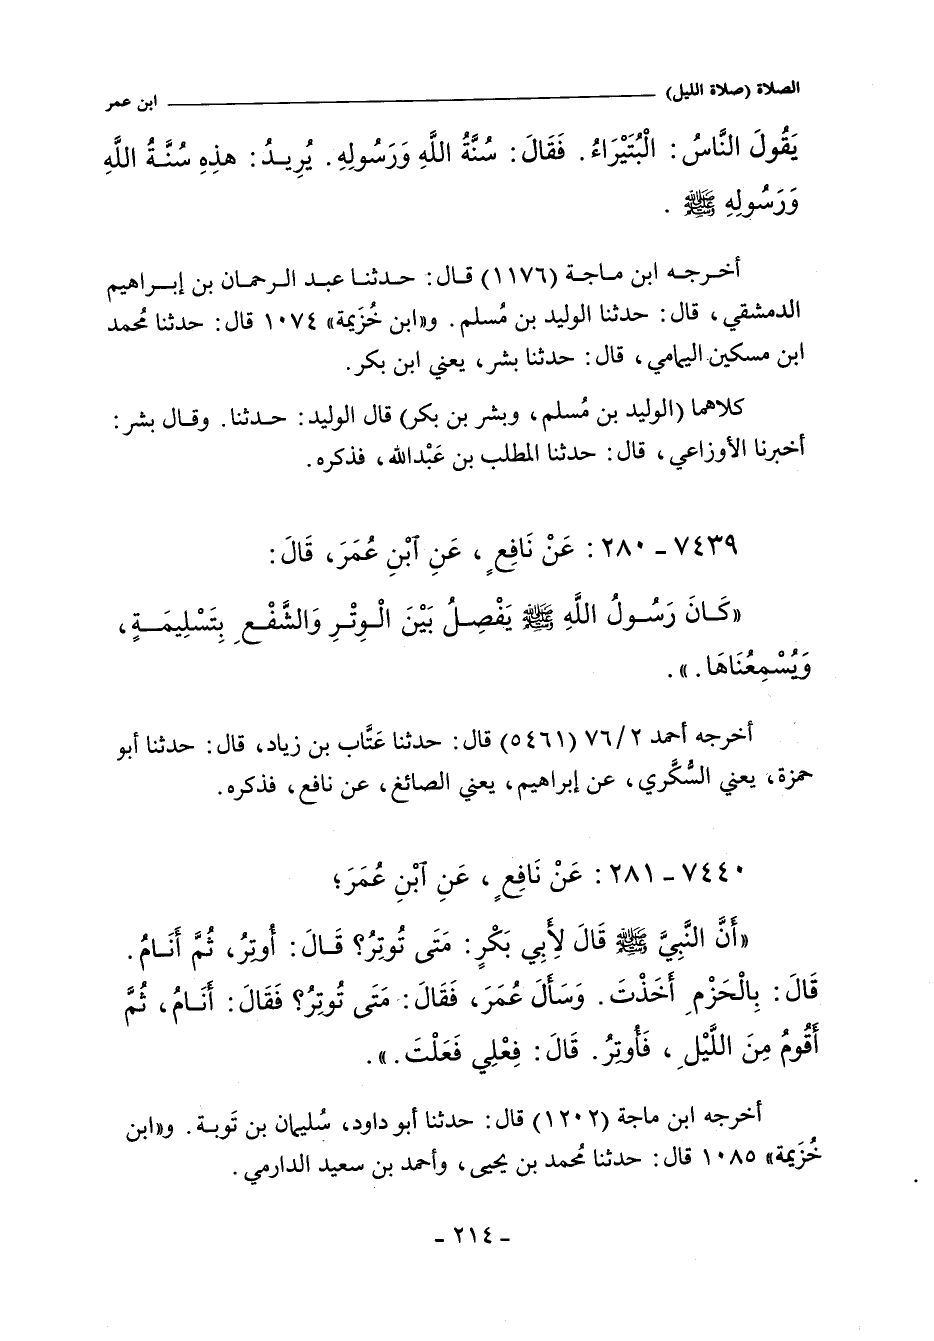 الصلاة (صلاة الليل) ــــــــــــــــــــ ابن عمر
يَقُولَ النَّاسُ: الْبُتَيْرَاءُ. فَقَالَ: سُنَّةُ اللَّهِ وَرَسُولِهِ. يُرِيدُ: هذِهِ سُنَّةُ اللَّهِ
وَرَسُولِهِ ﷺ .
أخرجه ابن ماجة (١١٧٦) قال: حدثنا عبد الرحمان بن إبراهيم
الدمشقي، قال: حدثنا الوليد بن مُسلم. و«ابن خُزَيمة» ١٠٧٤ قال: حدثنا مُحمد
ابن مسكين اليمامي، قال: حدثنا بشر، يعني ابن بكر.
كلاهما (الوليد بن مُسلم، وبشر بن بكر) قال الوليد: حدثنا. وقال بشر:
أخبرنا الأوزاعي، قال: حدثنا المطلب بن عَبْدالله، فذكره.
٧٤٣٩ - ٢٨٠ : عَنْ نَافِعٍ، عَنِ ٱبْنِ عُمَرَ، قَالَ:
«كَانَ رَسُولُ اللَّهِ ﷺ يَفْصِلُ بَيْنَ الْوِتْرِ وَالشَّفْعِ بِتَسْلِيمَةٍ،
وَيُسْمِعُنَاهَا.».
أخرجه أحمد ٧٦/٢ (٥٤٦١) قال: حدثنا عَتَّاب بن زياد، قال: حدثنا أبو
حمزة، يعني السُّكَّري، عن إبراهيم، يعني الصائغ، عن نافع، فذكره.
٧٤٤٠ - ٢٨١ : عَنْ نَافِعٍ، عَنِ ٱبْنِ عُمَرَ؛
«أَنَّ النَّبِيَّ ﷺ قَالَ لِأَبِي بَكْرٍ: مَتَى تُوتِرُ؟ قَالَ: أُوتِرُ، ثُمَّ أَنَامُ.
قَالَ: بِالْحَزْمِ أَخَذْتَ. وَسَأَلَ عُمَرَ، فَقَالَ: مَتَى تُوتِرُ؟ فَقَالَ: أَنَامُ، ثُمَّ
أَقُومُ مِنَ اللَّيْلِ، فَأُوتِرُ. قَالَ: فِعْلِي فَعَلْتَ.».
أخرجه ابن ماجة (١٢٠٢) قال: حدثنا أبو داود، سُليمان بن تَوبة. و«ابن
خُزَيمة» ١٠٨٥ قال: حدثنا مُحمد بن يحيى، وأحمد بن سعيد الدارمي.
- ٢١٤ -